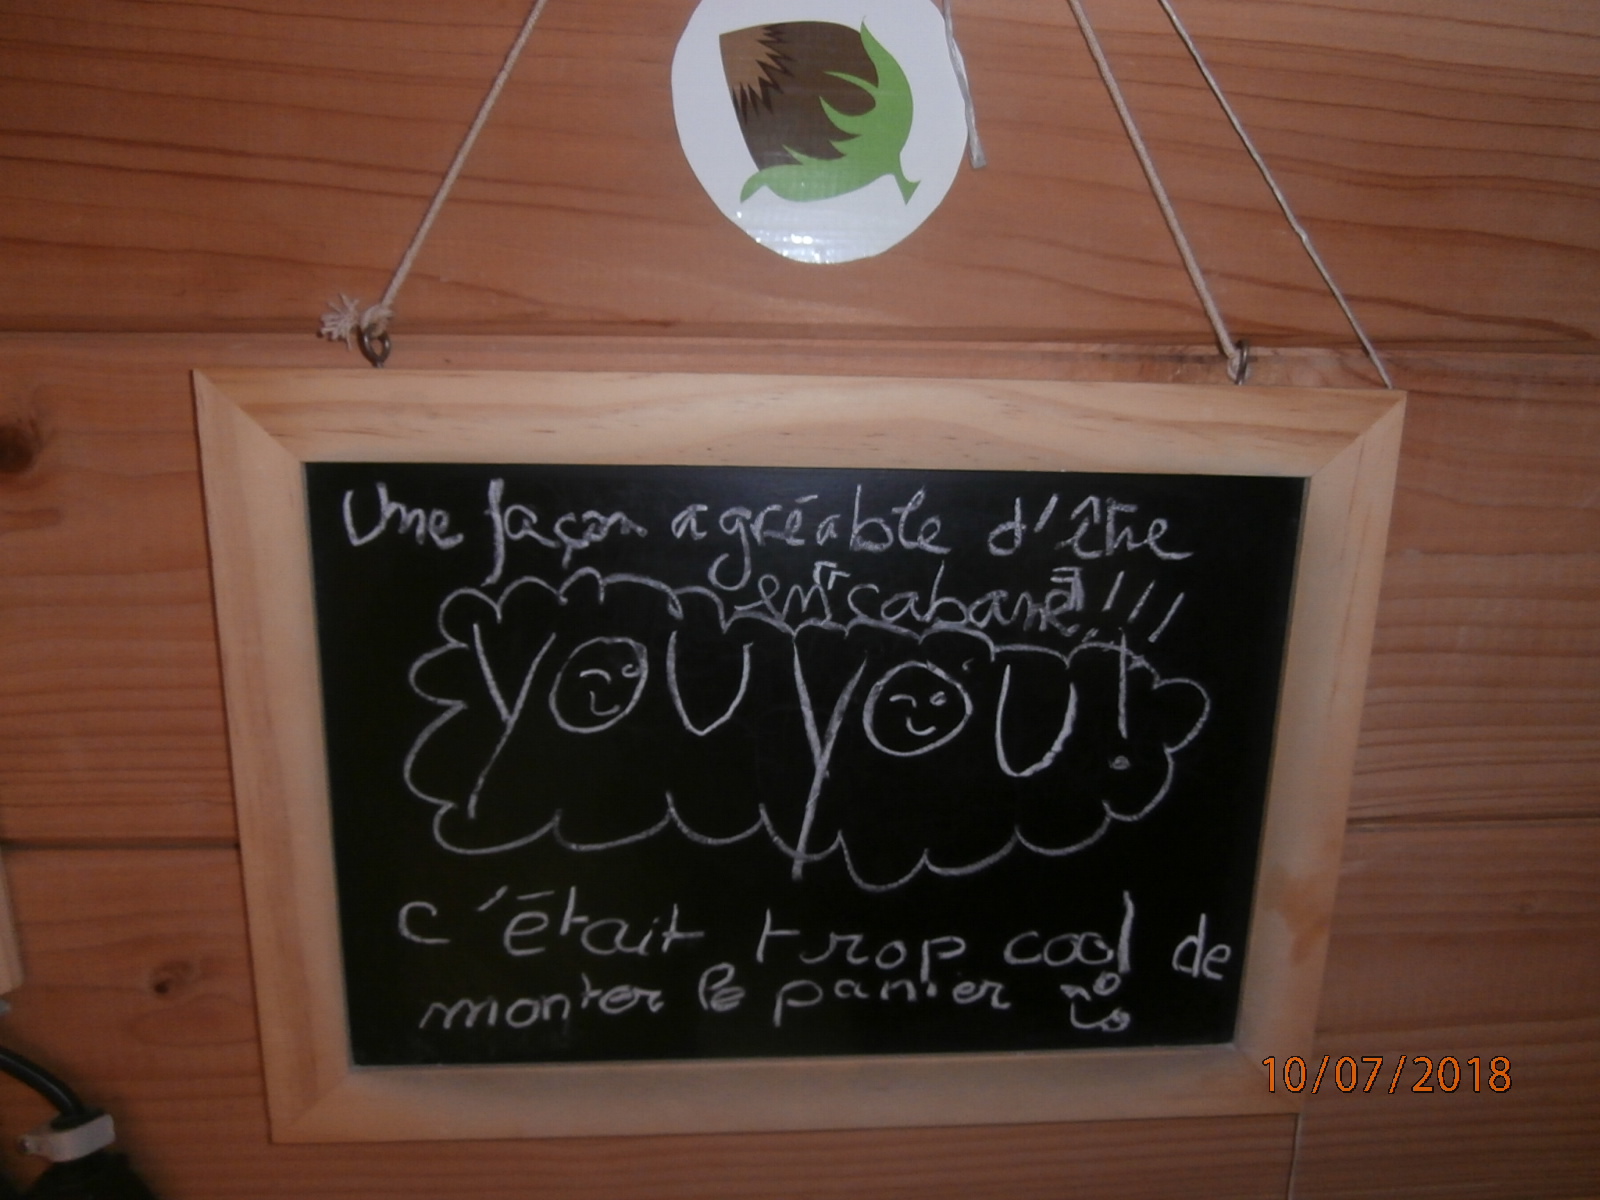 Une façon agréable d'être
en "cabane" !!!
YOU YOU !
c'était trop cool de
monter le panier
10/07/2018